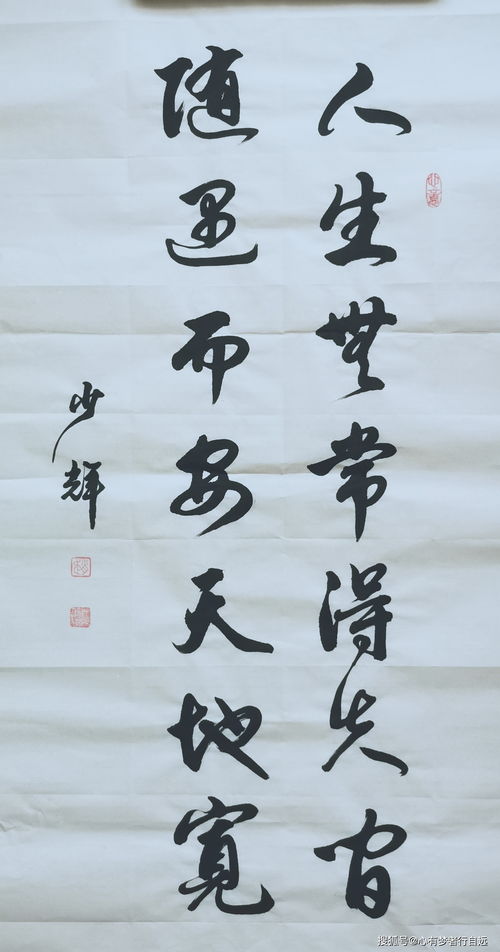 人生無常得失间
随遇而安天地寬
少輝
搜狐号@心有梦者行自远